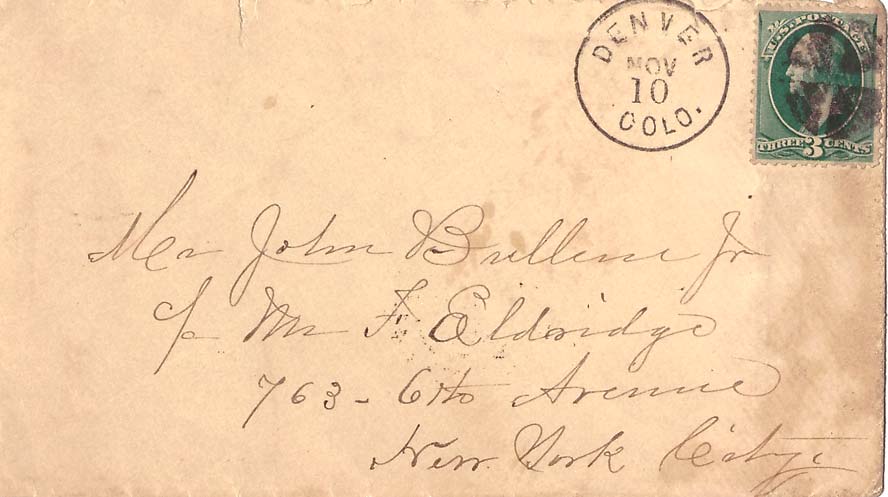 DENVER
NOV
10
COLO.
U.S. POSTAGE
THREE 3 CENTS
Mr John Bullene Jr
c/o Mr F. Eldridge
763 - 6th Avenue
New York City.